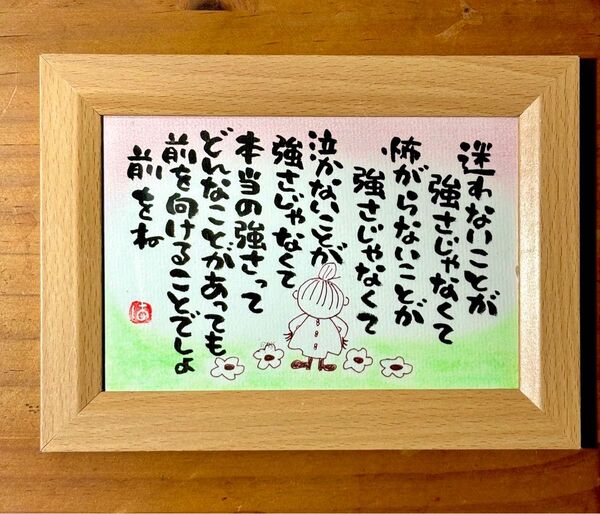 迷わないことが
強さじゃなくて
怖がらないことが
強さじゃなくて
泣かないことが
強さじゃなくて
本当の強さって
どんなことがあっても
前を向けることでしょ
前をね